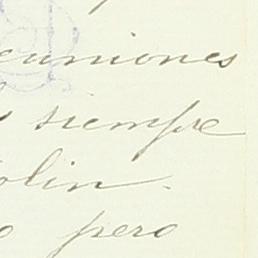 reuniones
siempre
olin.
o pero